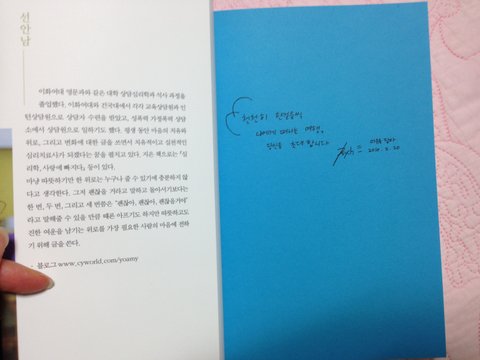 선안남
이화여대 영문과와 같은 대학 상담심리학과 석사 과정을
졸업했다. 이화여대와 건국대에서 각각 교육상담원과 인
턴상담원으로 상담자 수련을 받았고, 성폭력·가정폭력 상담
소에서 상담원으로 일하기도 했다. 평생 동안 마음의 치유와
위로, 그리고 변화에 대한 글을 쓰면서 치유적이고 실천적인
심리치료사가 되겠다는 꿈을 펼치고 있다. 지은 책으로는 『심
리학, 사랑에 빠지다』 등이 있다.
마냥 따뜻하기만 한 위로는 누구나 줄 수 있기에 충분하지 않
다고 생각한다. 그저 괜찮을 거라고 말하고 돌아서기보다는
한 번, 두 번, 그리고 세 번쯤은 "괜찮아, 괜찮아, 괜찮을거야"
라고 말해줄 수 있을 만큼 때론 아프기도 하지만 따뜻하고도
진한 여운을 남기는 위로를 가장 필요한 사람의 마음에 전하
기 위해 글을 쓴다.
블로그 www.cyworld.com/yoamy
천천히 한걸음씩
나에게 떠나는 여행,
당신을 초대합니다
2010. 2. 20